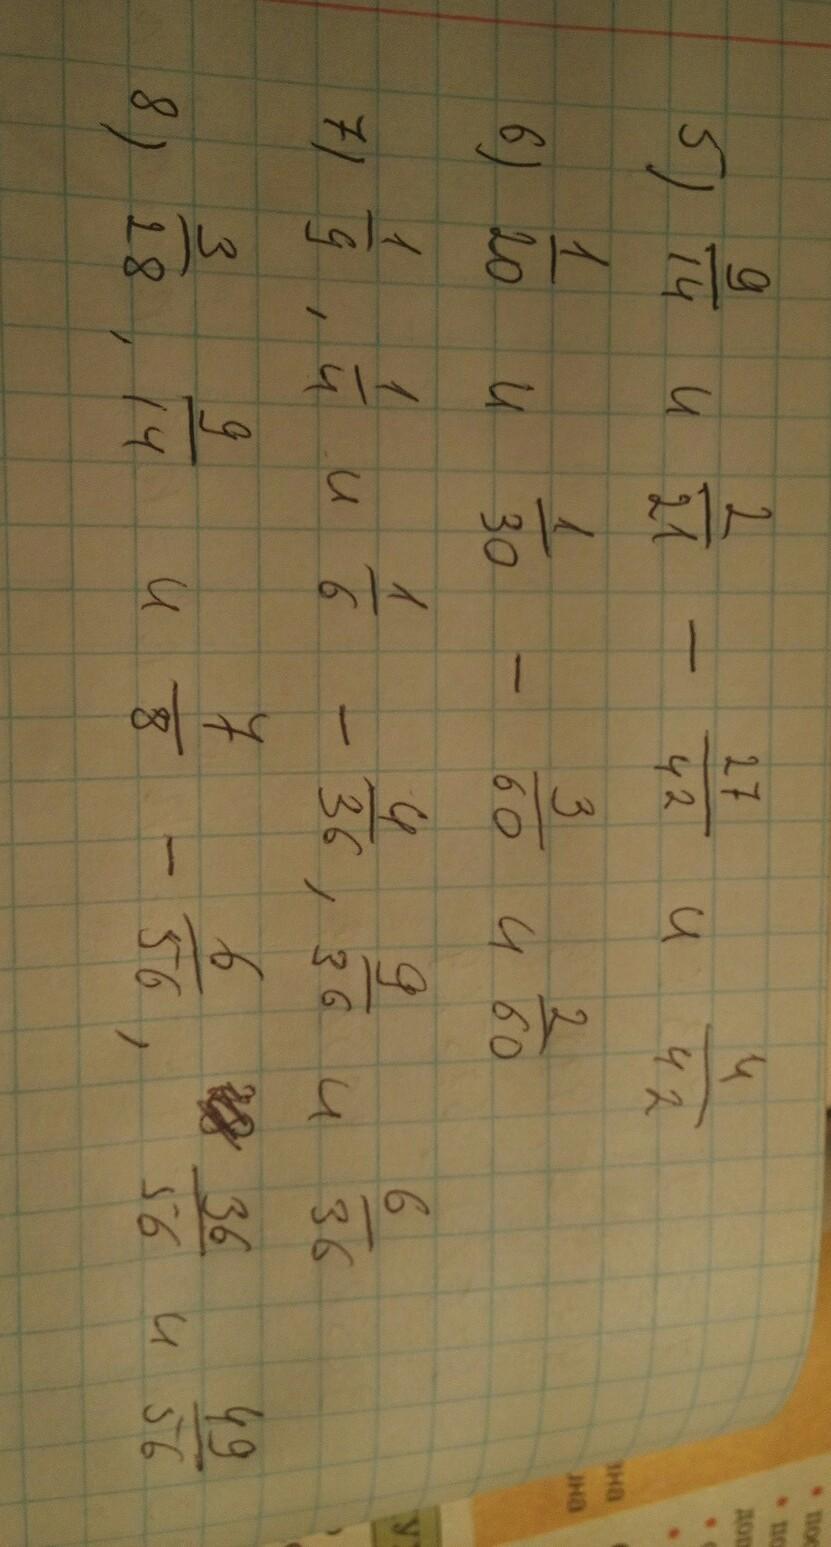 5) 9/14 и 2/21 – 27/42 и 4/42
6) 1/20 и 1/30 – 3/60 и 2/60
7) 1/9, 1/4 и 1/6 – 4/36, 9/36 и 6/36
8) 3/28, 9/14 и 7/8 – 6/56, 36/56 и 49/56